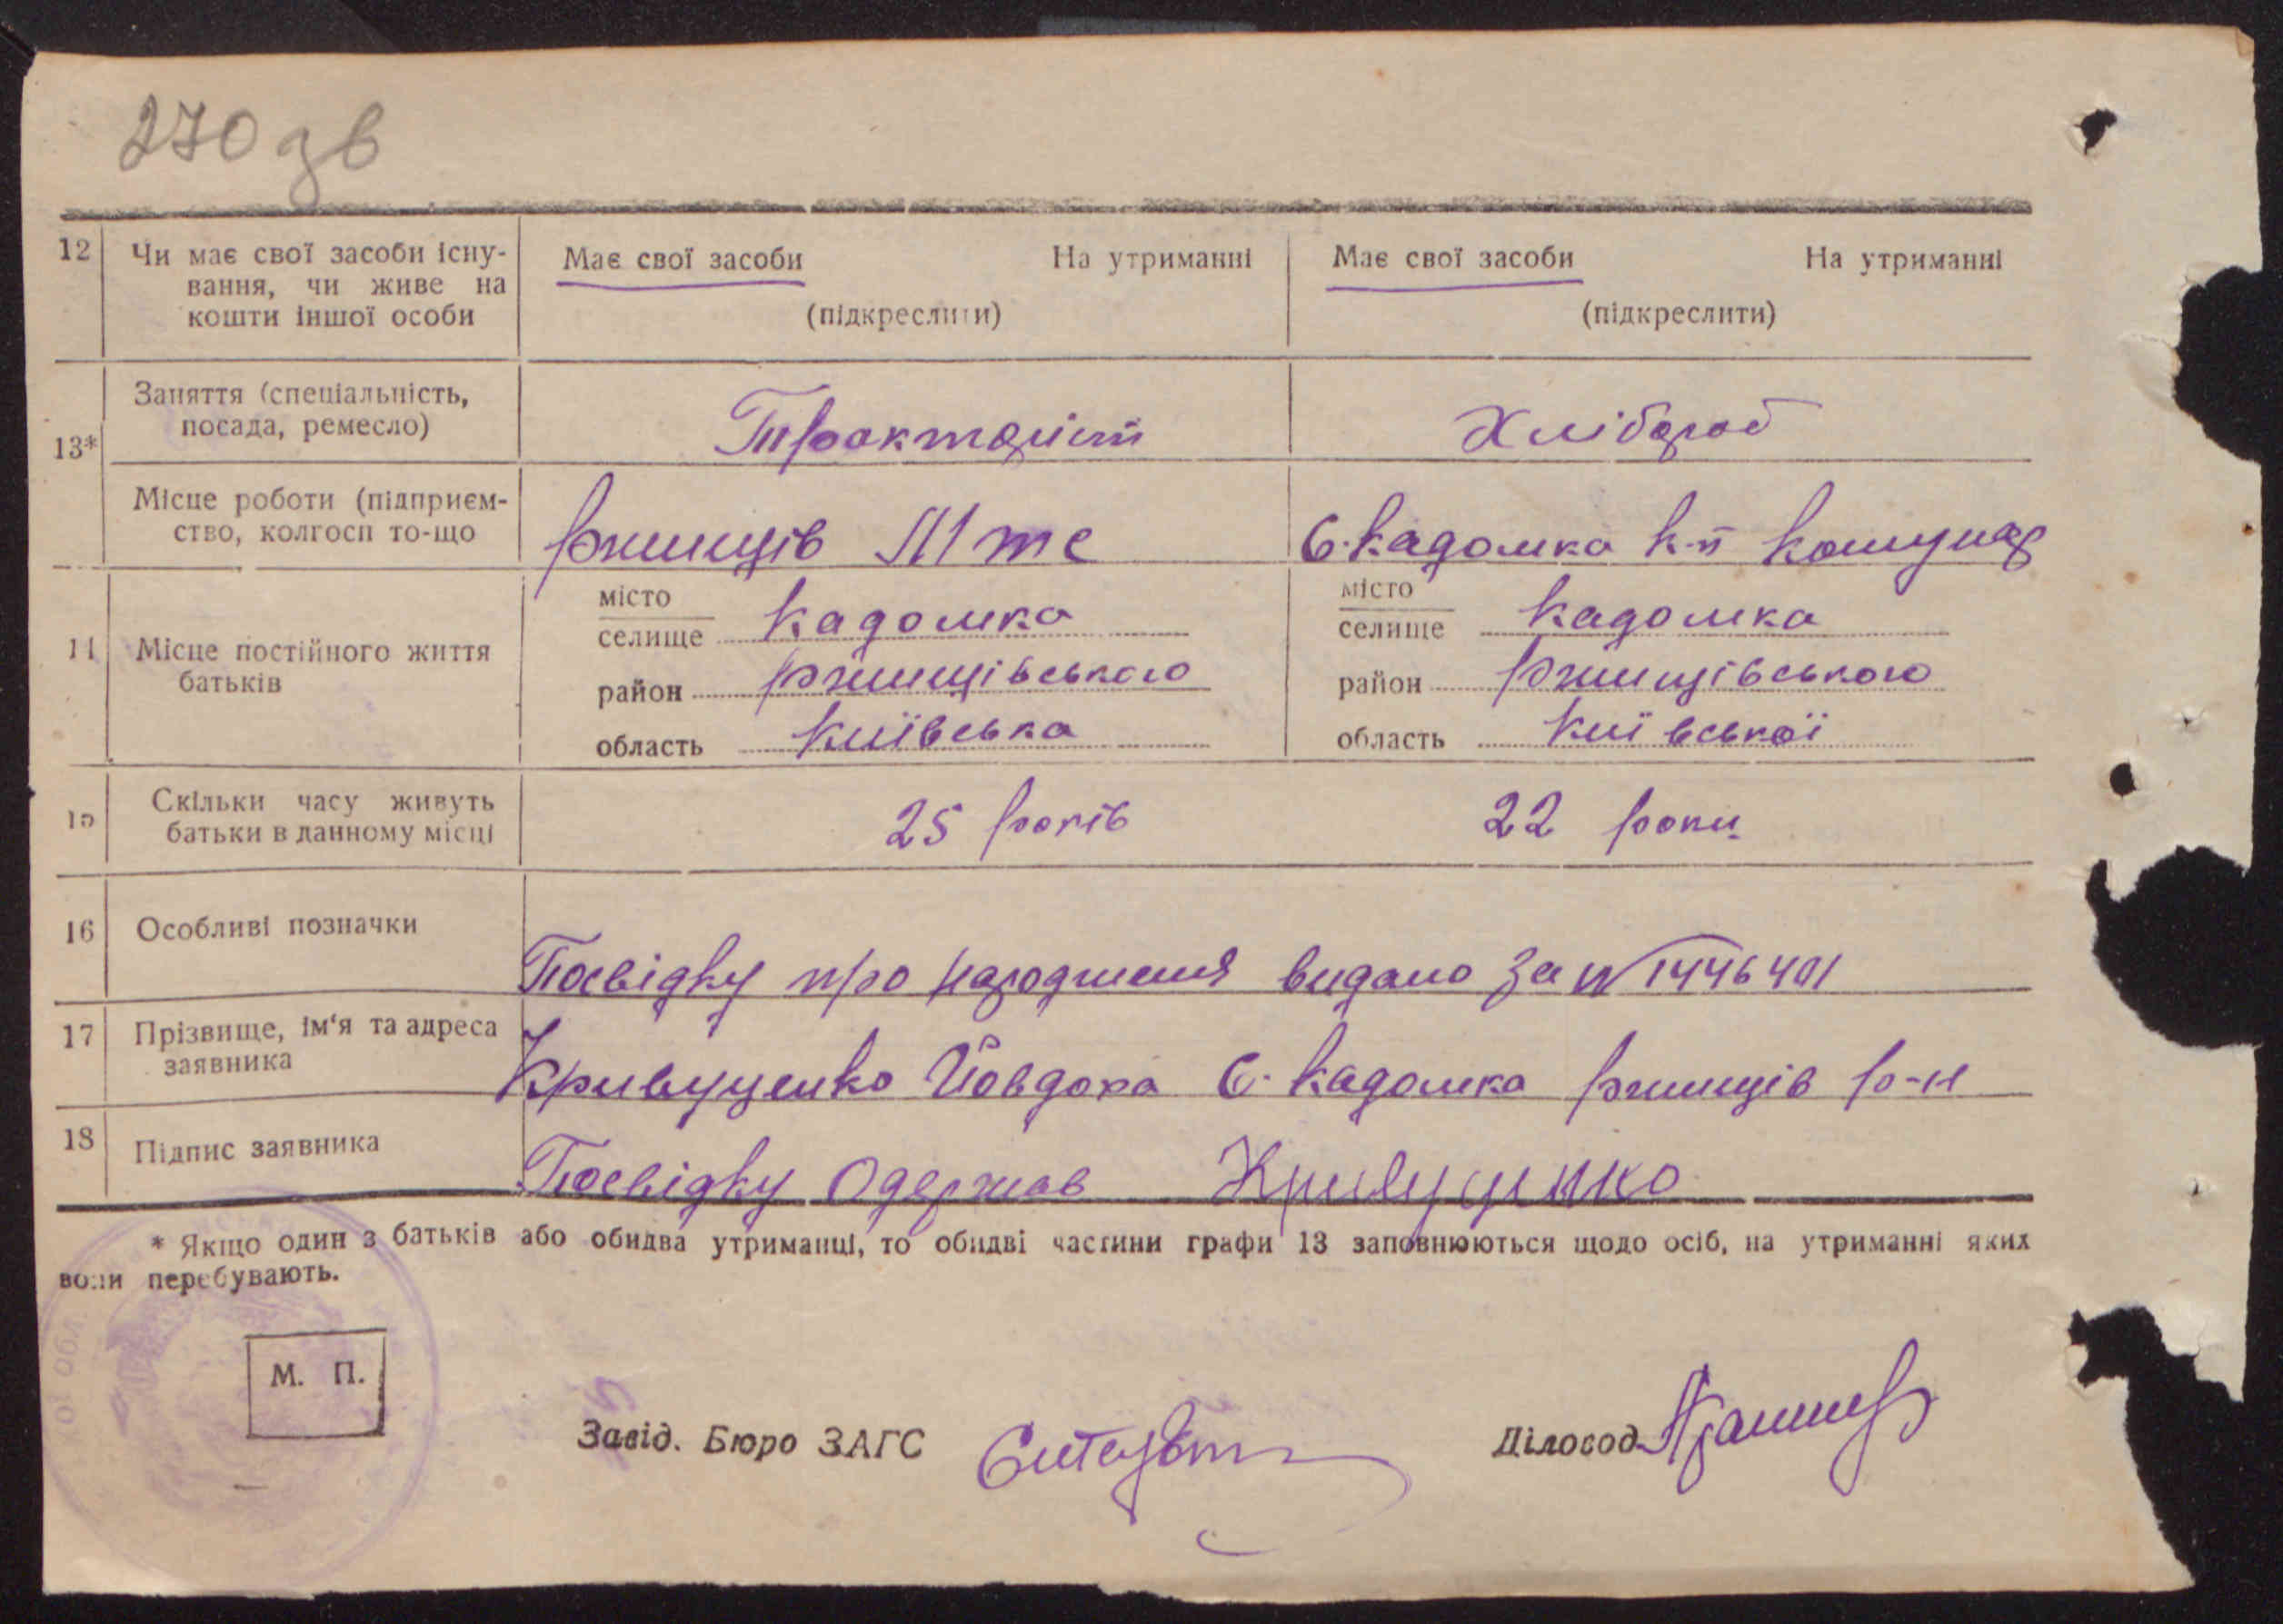 270 зв
12 Чи має свої засоби існу-
вання, чи живе на
кошти іншої особи
Має свої засоби На утриманні
(підкреслити)
Має свої засоби На утриманні
(підкреслити)
13*
Заняття (спеціальність,
посада, ремесло)
Трактаріст
Хлібороб
Місце роботи (підприєм-
ство, колгосп то-що
Ржищів Мтс
С. Кадомка к-п Комунар
14 Місце постійного життя
батьків
місто
селище Кадомка
район Ржищівського
область Київська
місто
селище Кадомка
район Ржищівського
область Київської
15 Скільки часу живуть
батьки в данному місці
25 років
22 роки
16 Особливі позначки
Посвідку про народження видано за № 1446401
17 Прізвище, ім'я та адреса
заявника
Кривуценко Йовдоха С. Кадомка Ржищів р-н
18 Підпис заявника
Посвідку Одержав Кривуценко
* Якщо один з батьків або обидва утриманці, то обидві частини графи 13 заповнюються щодо осіб, на утриманні яких
вони перебувають.
М. П.
Завід. Бюро ЗАГС
Діловод